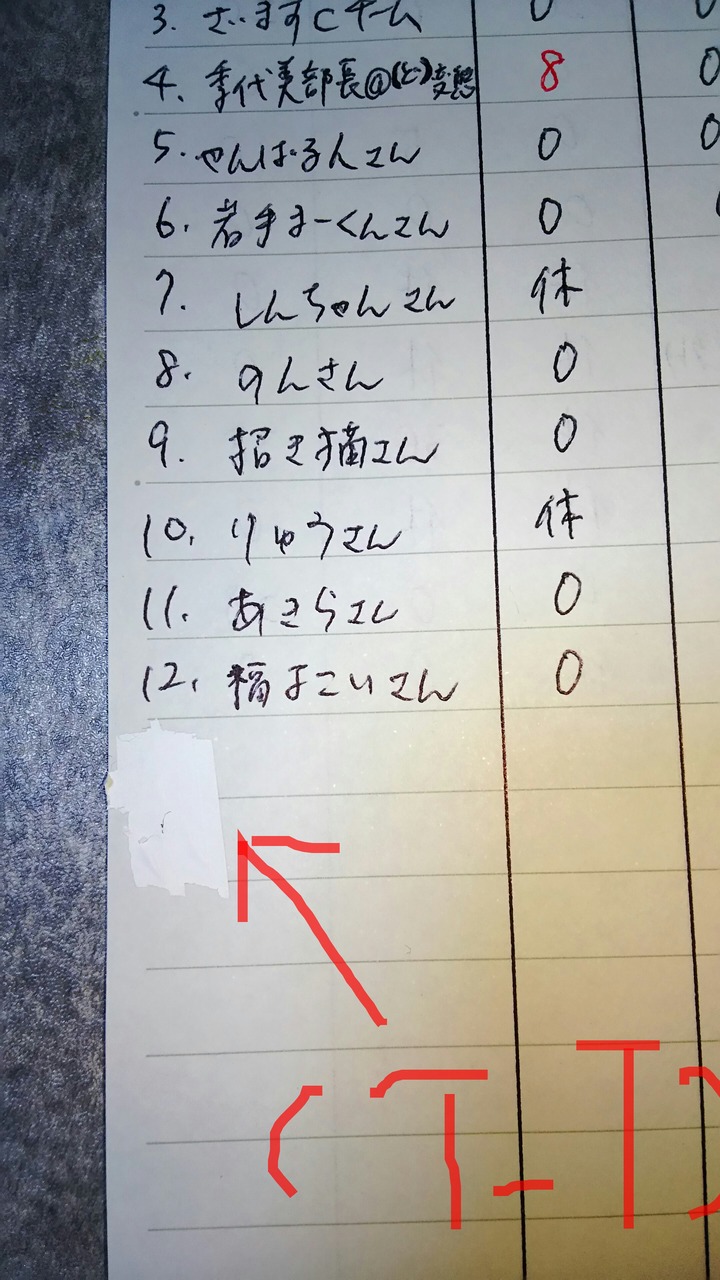 3. ざいますCチーム 0
4. 季代美部長@(ど)変態 8 0
5. やんばるんさん 0 0
6. 岩手まーくんさん 0
7. しんちゃんさん 休
8. のんさん 0
9. 招き猫さん 0
10. りゅうさん 休
11. あきらさん 0
12. 福よこいさん 0
(T_T)